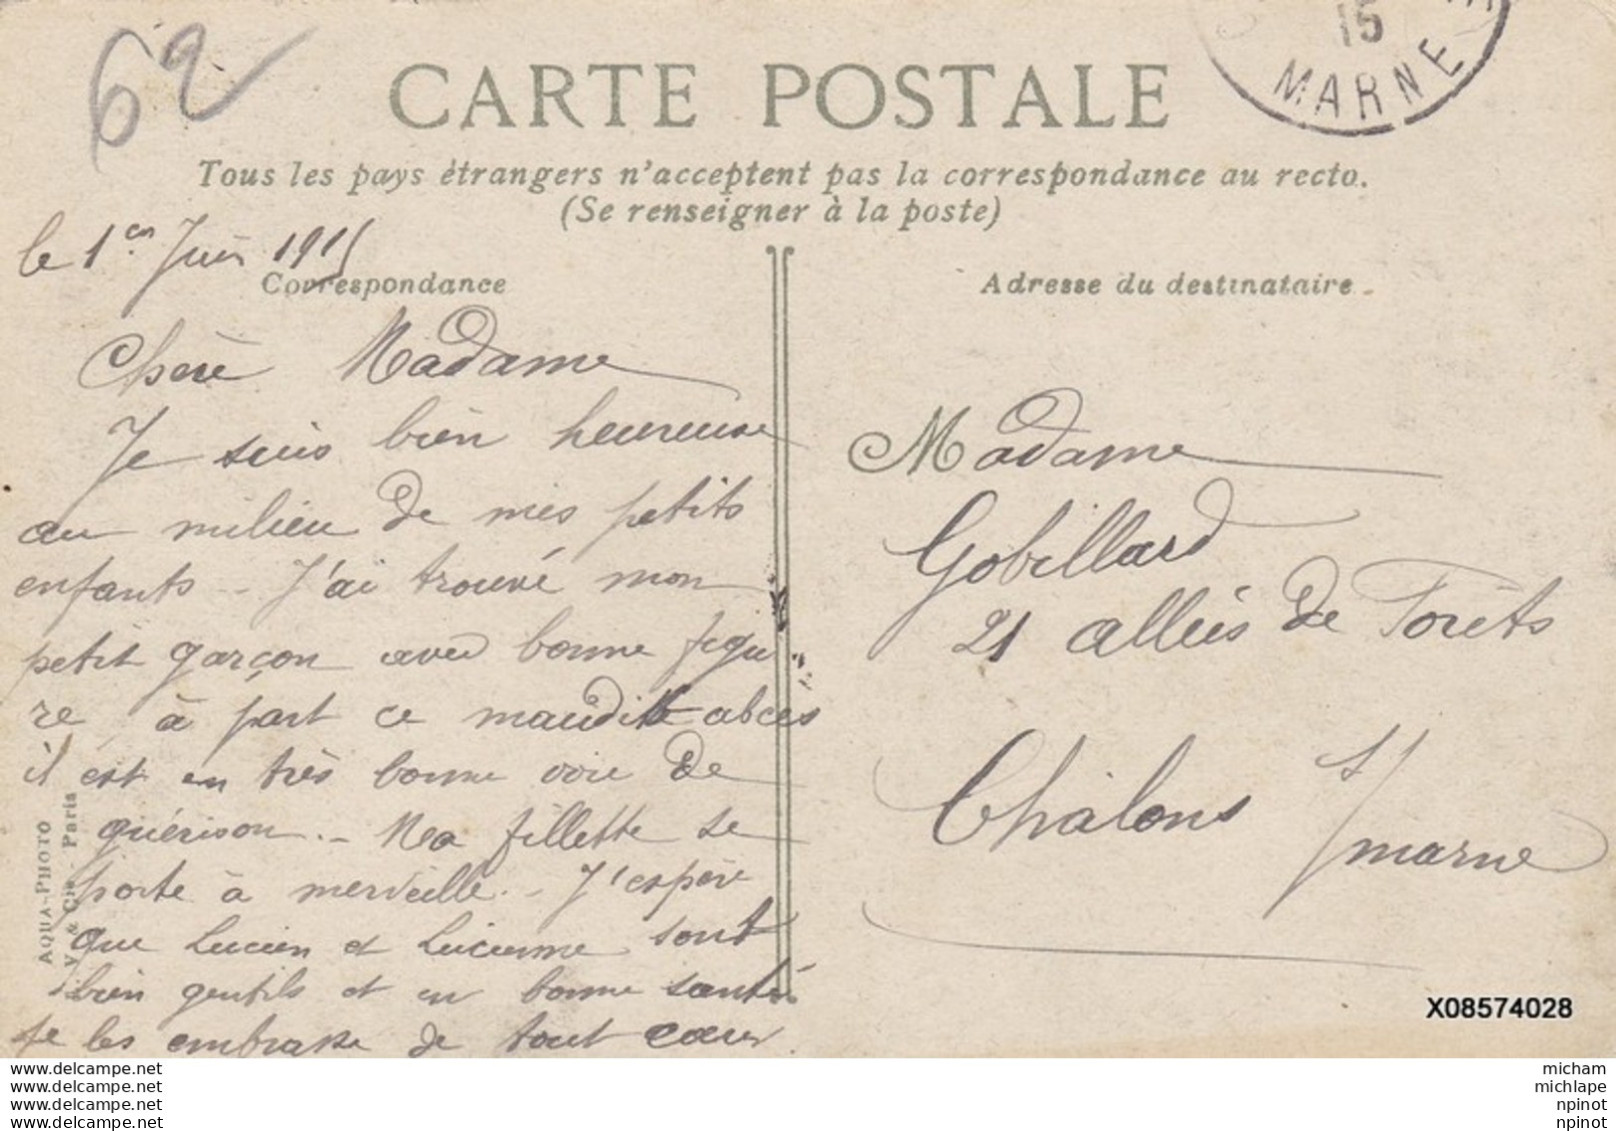 62
15
MARNE
CARTE POSTALE
Tous les pays étrangers n'acceptent pas la correspondance au recto.
(Se renseigner à la poste)
le 1er Juin 1915
Correspondance
Chère Madame
Je suis bien heureuse
au milieu de mes petits
enfants - J'ai trouvé mon
petit garçon avec bonne figu
re, à part ce maudit abcès
il est en très bonne voie de
guérison. - Ma fillette se
porte à merveille. - J'espère
que Lucien et Lucienne sont
bien gentils et en bonne santé
Je les embrasse de tout cœur.
AQUA-PHOTO
V. & Cie - Paris
Adresse du destinataire
Madame
Gobillard
21 allées de Forêts
Châlons s/marne
X08574028
www.delcampe.net
www.delcampe.net
www.delcampe.net
www.delcampe.net
micham
michlape
npinot
npinot